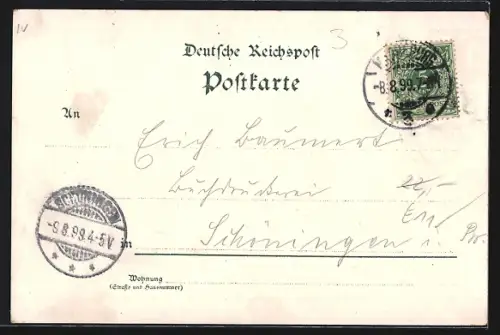 IV
3
Deutsche Reichspost
Postkarte
-8.8.99.7-
* 3
An
Erich Baumert
Buchdruckerei
22,-
Schöningen i. Br.
in
SCHÖNINGEN
-9.8.99.4-5V
* * *
Wohnung
(Straße und Hausnummer)